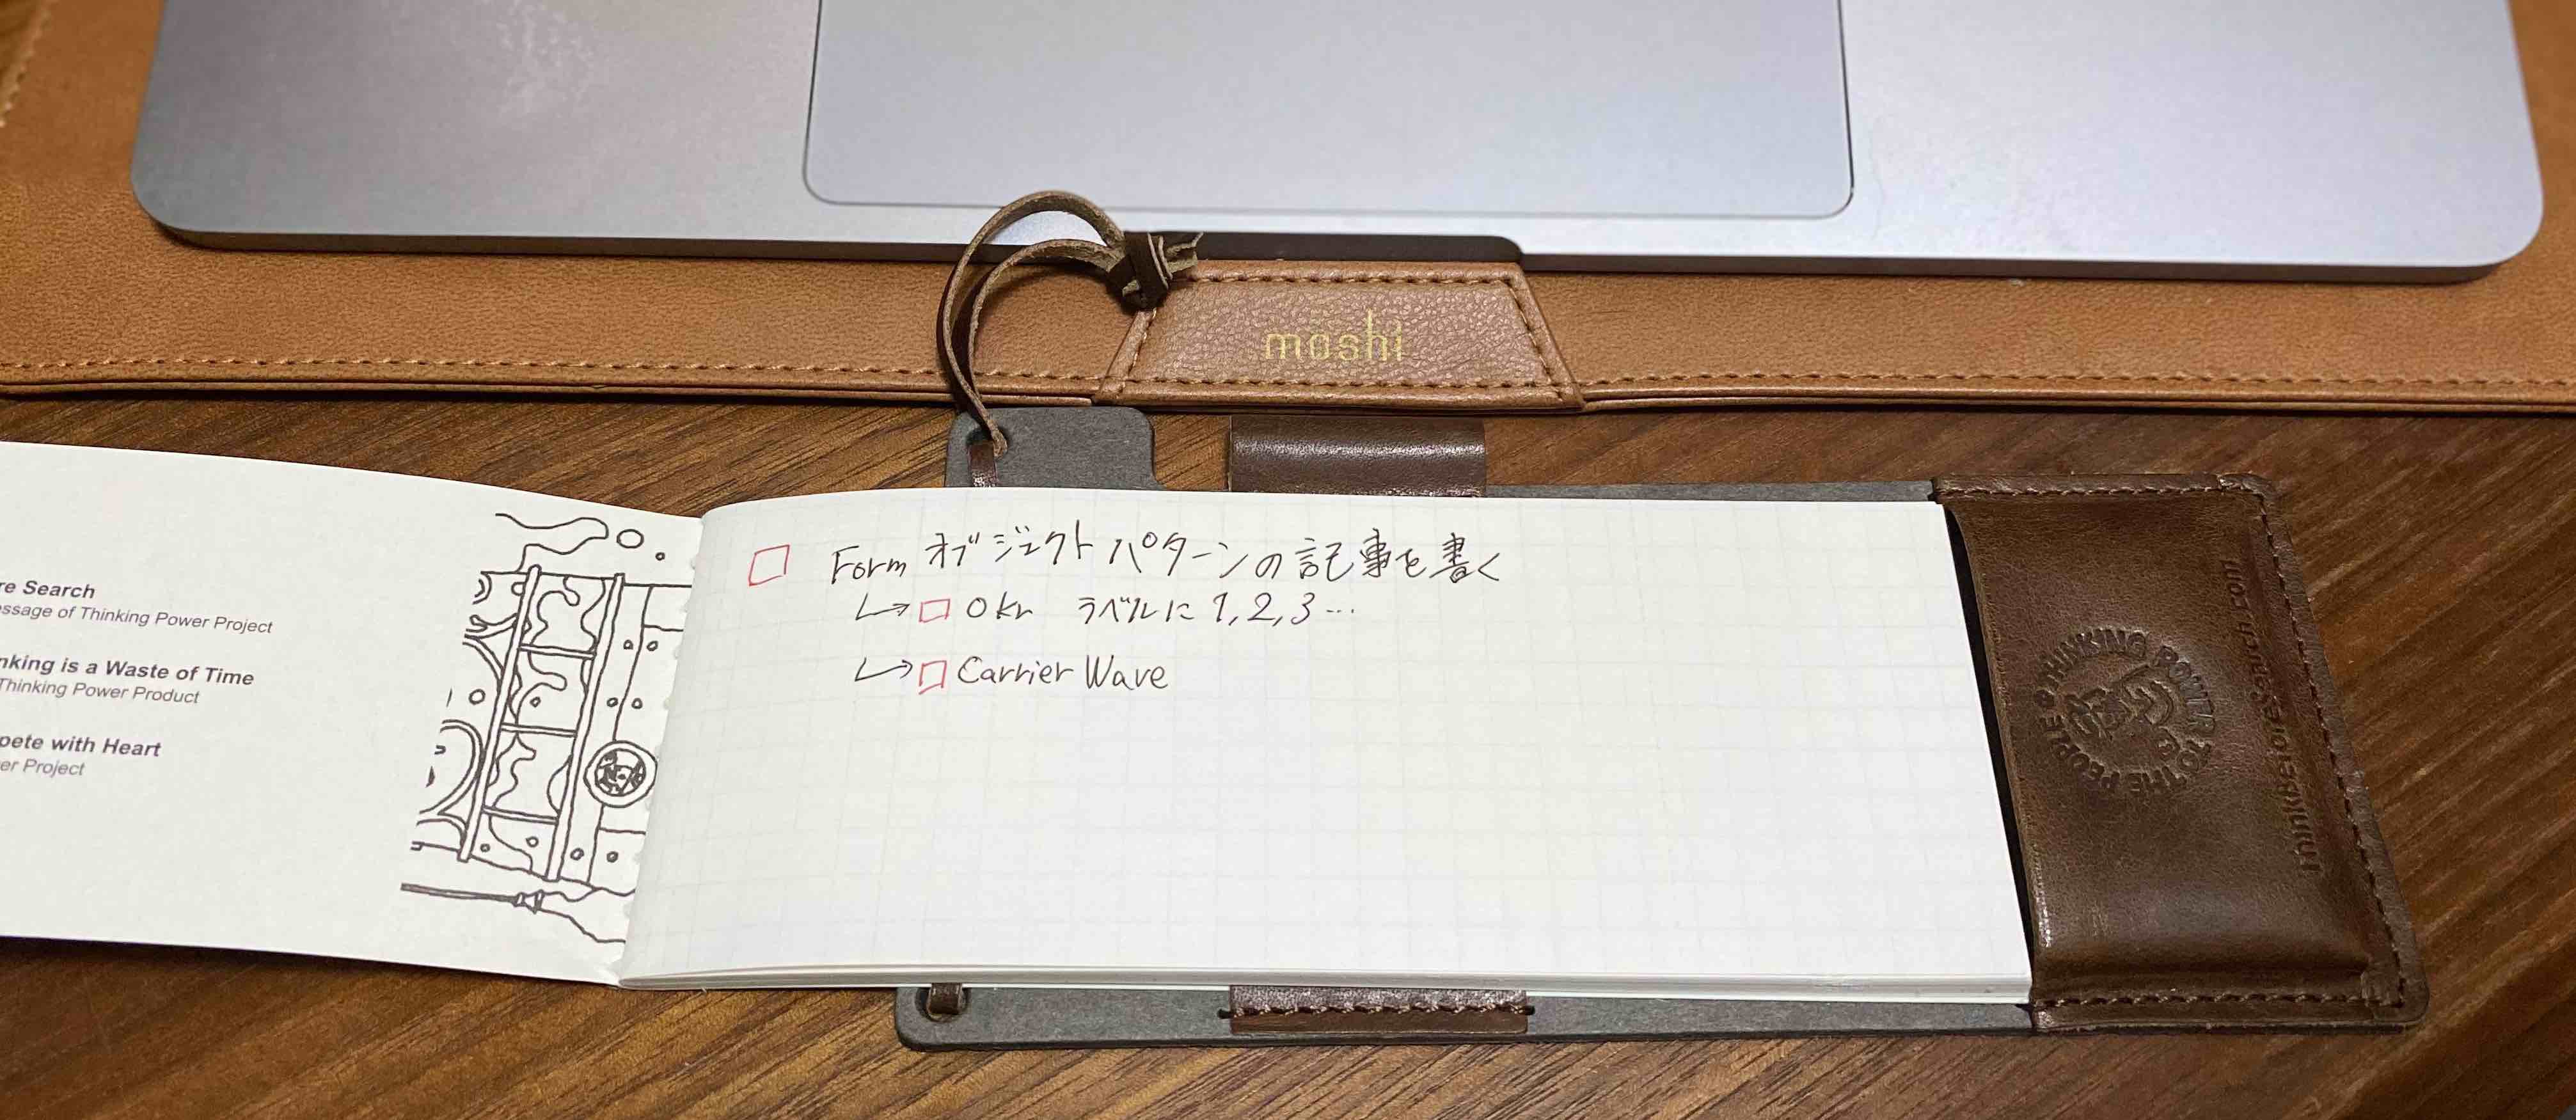 moshi
re Search
essage of Thinking Power Project
nking is a Waste of Time
Thinking Power Product
pete with Heart
er Project
Form オブジェクトパターンの記事を書く
↳ Okr ラベルに 1, 2, 3 …
↳ Carrier Wave
THINKING POWER TO THE PEOPLE
ThinkBeforeSearch.com